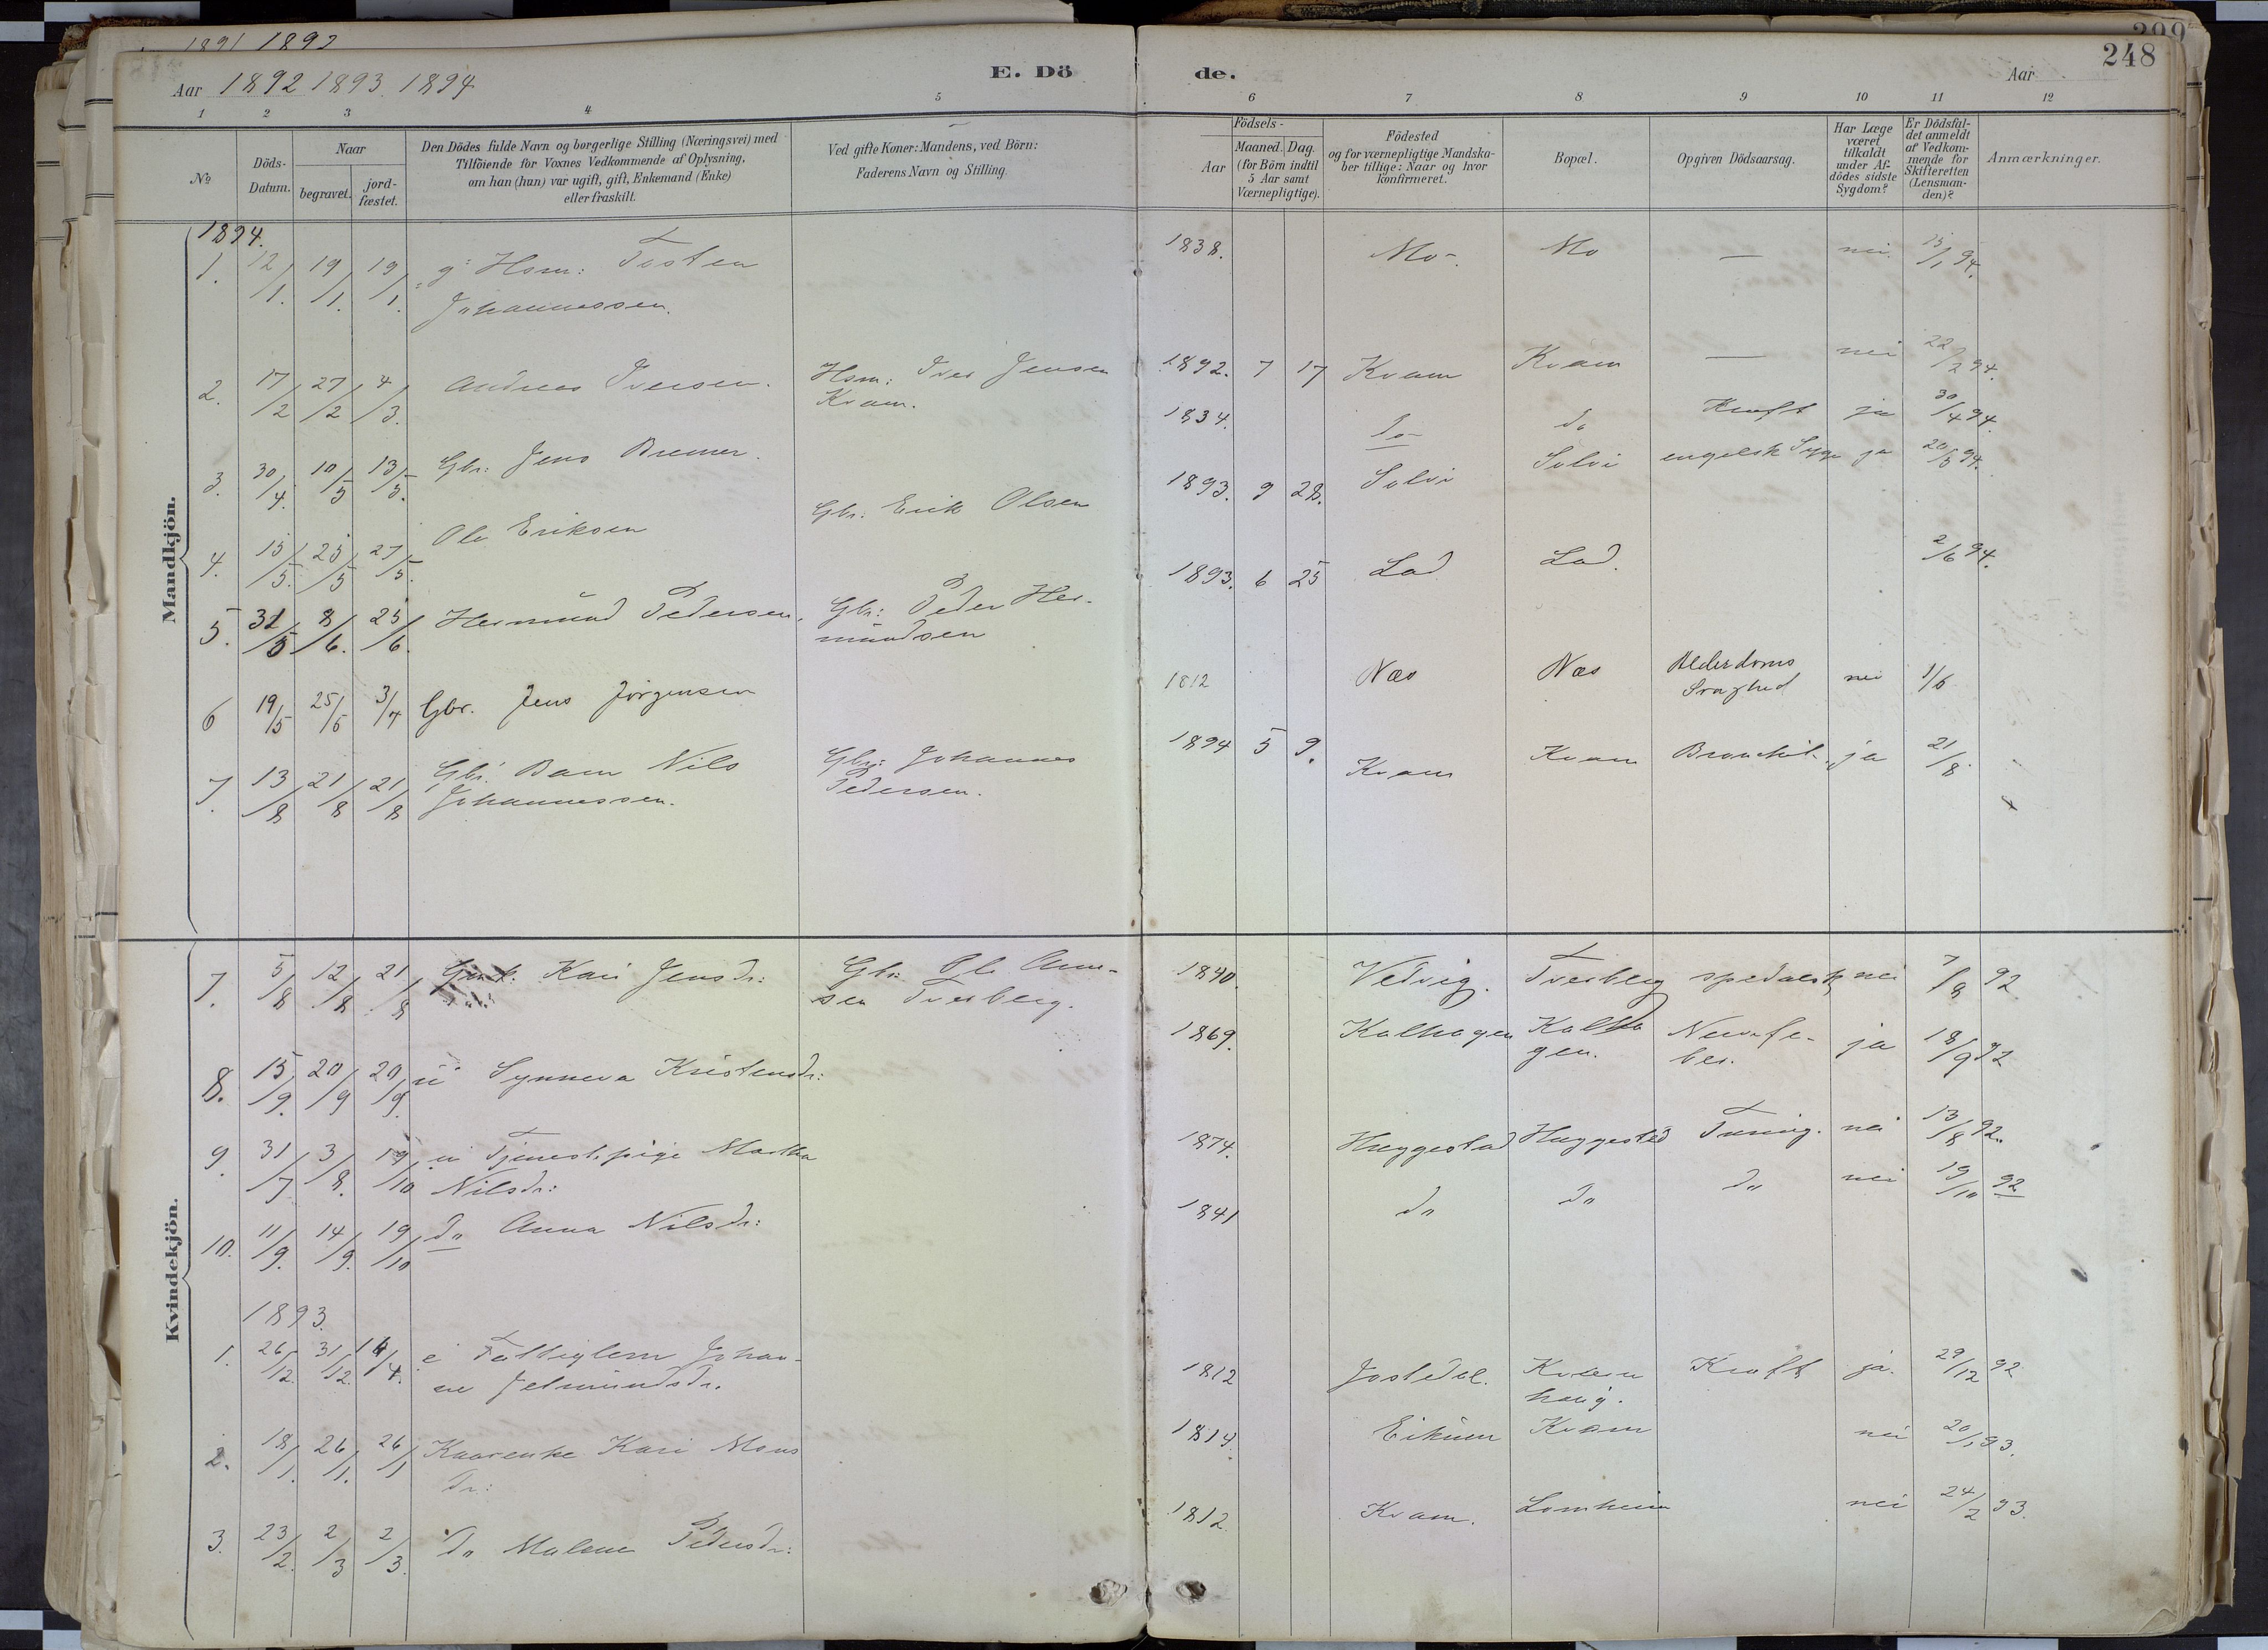 1891 1892
299
248
Aar 1892 1893 1894
E. Dö
de.
Aar
1 2 3 4 5 6 7 8. 9 10 11 12
No
Döds-
Datum.
Naar
begravet.
jord-
fæstet.
Den Dödes fulde Navn og borgerlige Stilling (Næringsvei) med
Tilföiende for Voxnes Vedkommende af Oplysning,
om han (hun) var ugift, gift, Enkemand (Enke)
eller fraskilt.
Ved gifte Koner: Mandens, ved Börn:
Faderens Navn og Stilling.
Födsels-
Aar
Maaned. Dag.
(for Börn indtil
5 Aar samt
Værnepligtige).
Födested
og for værnepligtige Mandska-
ber tillige: Naar og hvor
konfirmeret.
Bopæl.
Opgiven Dödsaarsag.
Har Læge
været
tilkaldt
under Af-
dödes sidste
Sygdom?
Er Dödsfal-
det anmeldt
af Vedkom-
mende for
Skifteretten
(Lensman-
den)?
Anmærkninger.
Mandkjön.
1894.
1. 12/1. 19/1. 19/1. g: Hsm: Tosten 1838. Mo. Mo — nei 15/1 94.
Johannessen.
2. 17/2 27/2 4/3. Andreas Iversen. Hsm: Iver Jensen 1892. 7 17 Kvam Kvam — nei 22/2 94.
Kvam.
3. 30/4. 10/5 13/5. Gbr: Jens Bremer. 1834. do do Kræft ja 30/4 94.
4. 15/5. 25/5 27/5. Ole Eriksen Gbr: Erik Olsen 1893. 9 28. Solvi Solvi engelsk Syge ja 20/5 94.
5. 31/5 8/6. 25/6. Hermund Pedersen. Gbr: Peder Her- 1893. 6 25 Lad Lad. 2/6 94.
mundsen
6 19/5 25/5 3/7 Gbr. Jens Jörgensen 1812 Næs Næs Alderdoms nei 1/6
Svaghed
7. 13/8 21/8 21/8 Gbr. Barn Nils Gbr: Johannes 1894 5 9. Kvam Kvam Bronchit. ja 21/8.
Johannessen. Pedersen.
Kvindekjön.
7. 5/8 12/8 21/8 Kari Jensdr: Gbr: Ole Arne- 1840. Vedvig. Tverberg spedalsk nei 7/8 92
sen Tverberg.
8. 15/9. 20/9 20/9. u Synneva Kristensdr: 1869. Kalhagen Kalha Nervefe- ja 18/9 92
gen. ber.
9. 31/7 3/8. 19/10 u Tjenestepige Martha 1874. Huggestad Huggestad Tæring. nei 13/8 92.
Nilsdr:
10. 11/9. 14/9. 19/10 do Anna Nilsdr: 1841 do do do nei 19/10 92
1893.
1. 26/12. 31/12. 14/4. e Fattiglem Johan- 1812 Jostedal. Kvern Kræft ja. 29/12 92
ne Jetmundsdr. haug.
2. 18/1. 26/1. 26/1 Kaarenke Kari Mons 1814. Eikum Kvam nei 20/1 93.
dr:
3. 23/2. 2/3 2/3. do Malene Pedersdr: 1812. Kvam. Lomheim nei 24/2 93.